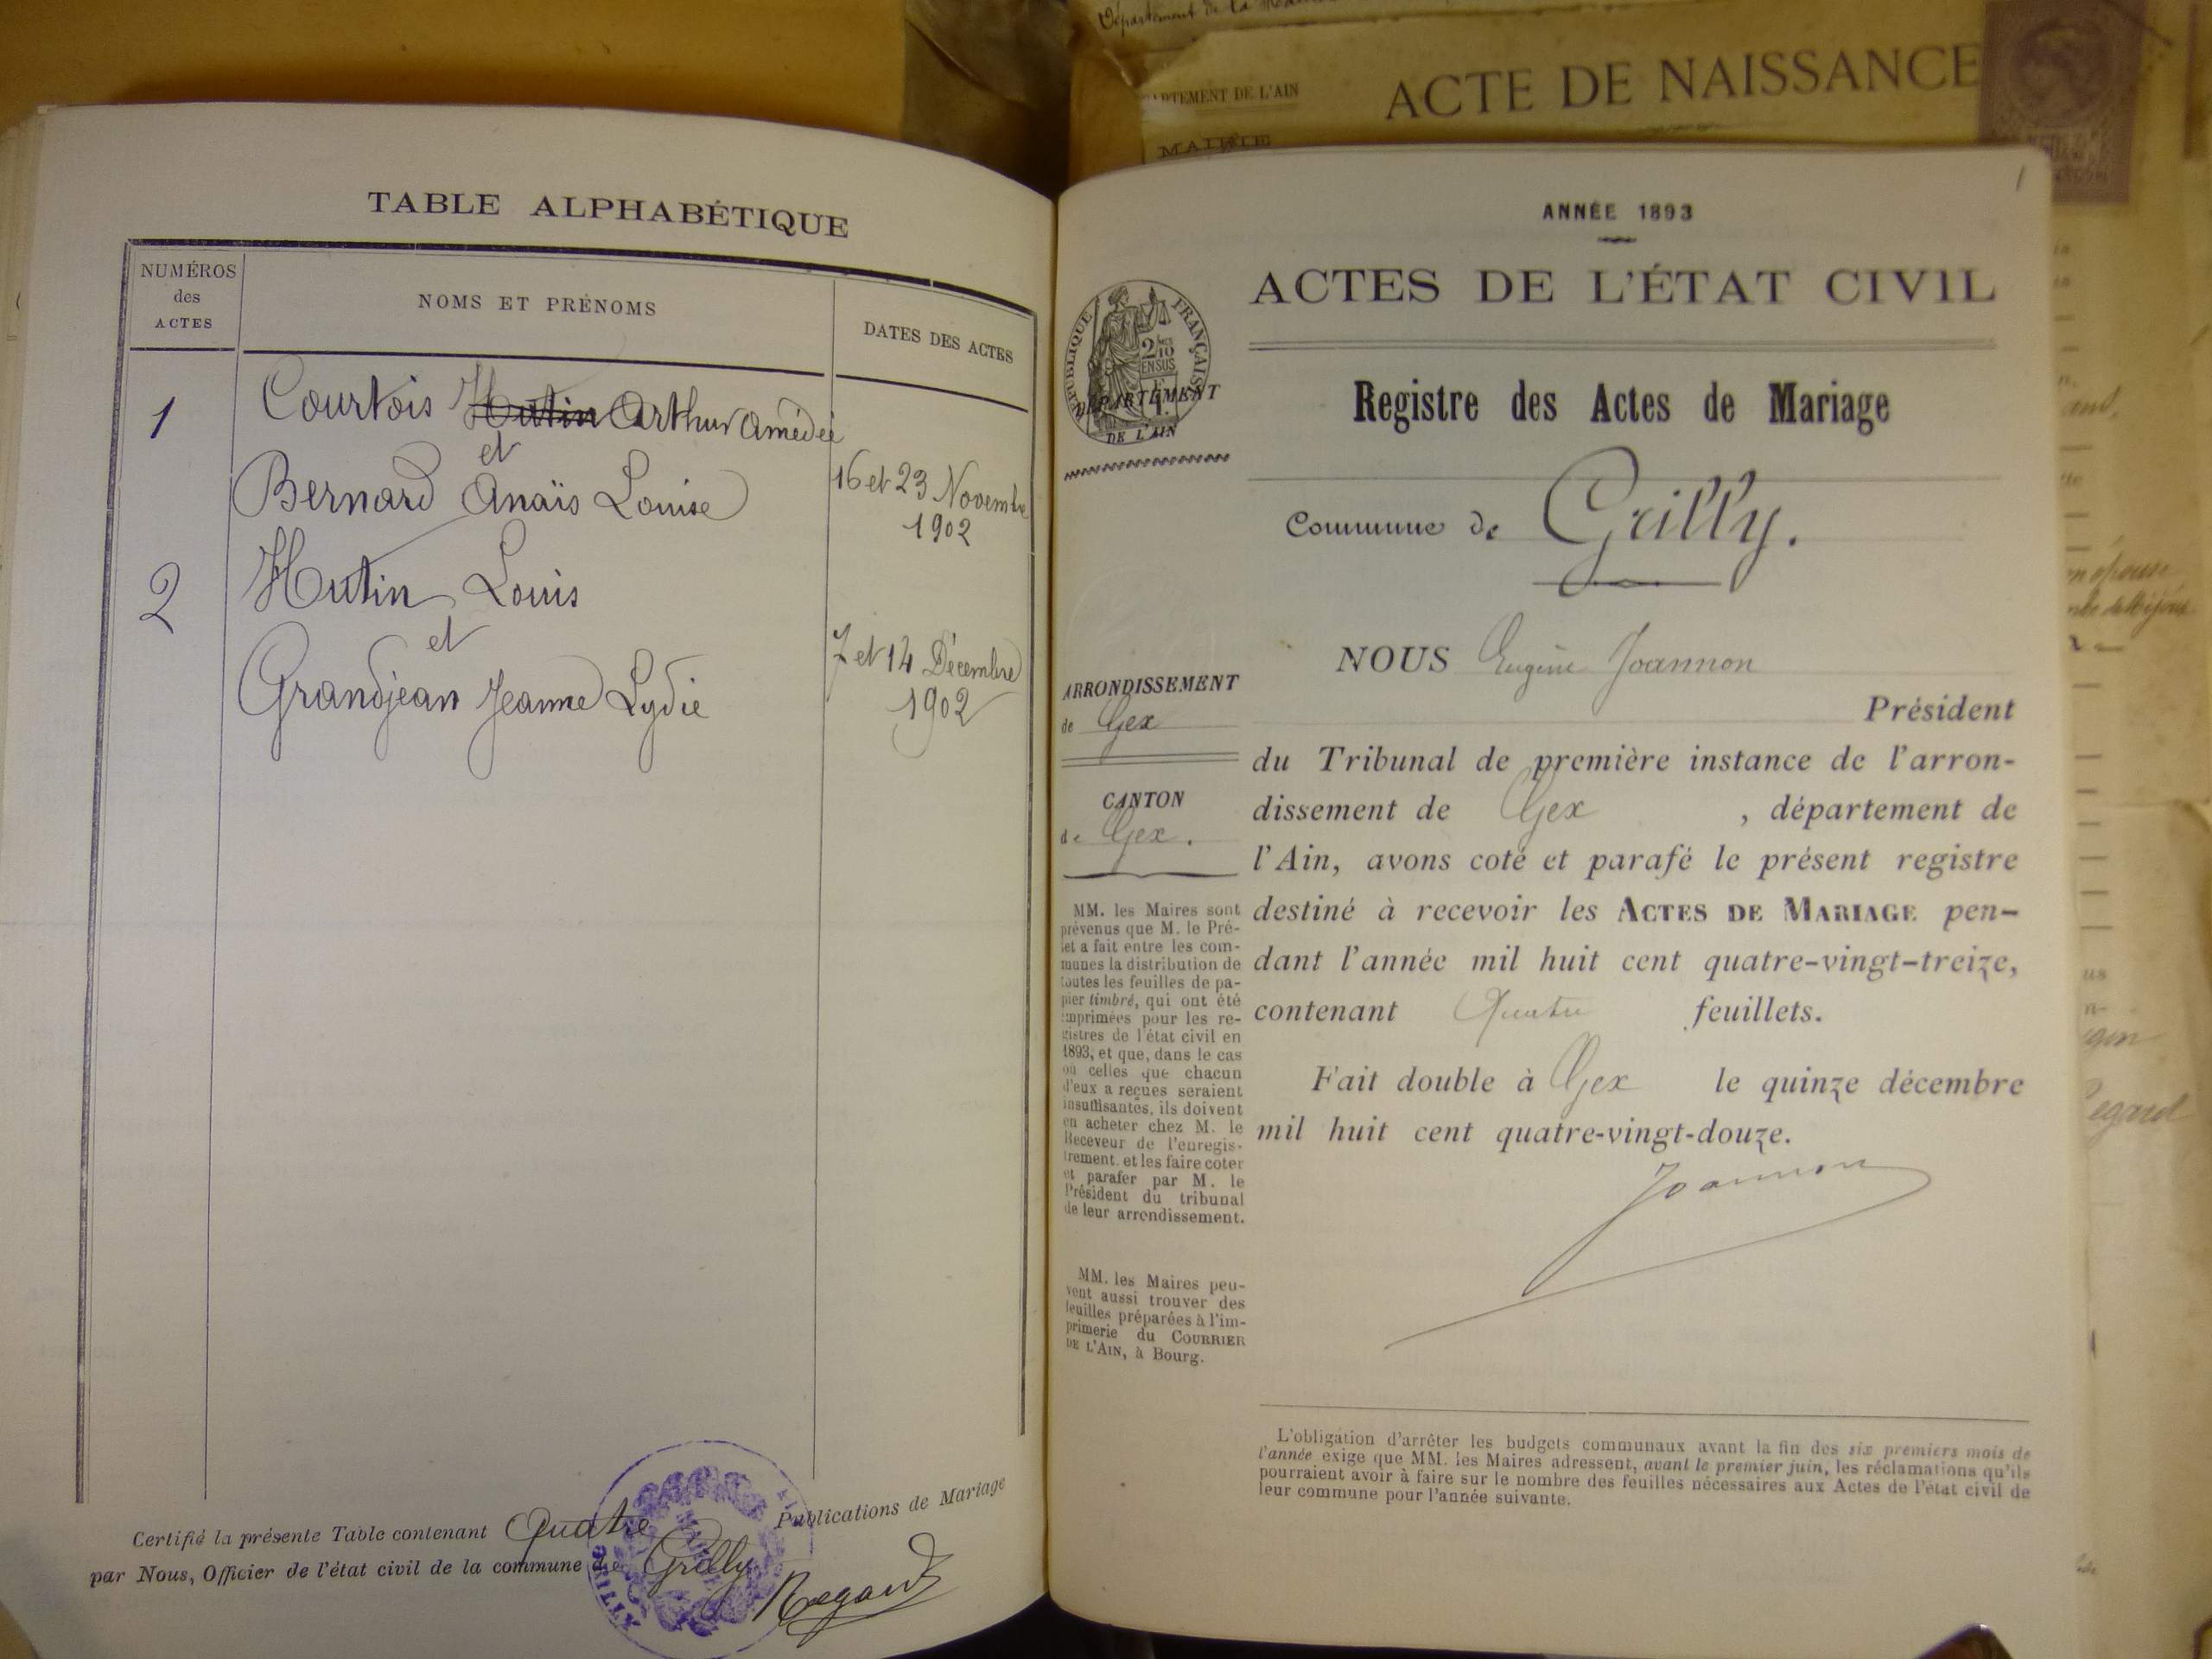 TABLE ALPHABÉTIQUE
NUMÉROS
des
ACTES
NOMS ET PRÉNOMS
DATES DES ACTES
1
Courtois Hutin Arthur Amédée
et
Bernard Anaïs Louise
16 et 23 Novembre
1902
2
Hutin Louis
et
Grandjean Jeanne Lydie
7 et 14 Décembre
1902
Certifié la présente Table contenant Quatre Publications de Mariage
par Nous, Officier de l'état civil de la commune de Grilly
Regard
GRILLY
Département de la
DÉPARTEMENT DE L'AIN
MAIRIE
ACTE DE NAISSANCE
1
ANNÉE 1893
ACTES DE L'ÉTAT CIVIL
RÉPUBLIQUE FRANÇAISE
2/10
EN SUS
DÉPARTEMENT
DE L'AIN
Registre des Actes de Mariage
Commune de Grilly.
NOUS Eugène Joannon
Président
du Tribunal de première instance de l'arron-
dissement de Gex, département de
l'Ain, avons coté et parafé le présent registre
destiné à recevoir les ACTES DE MARIAGE pen-
dant l'année mil huit cent quatre-vingt-treize,
contenant Quatre feuillets.
Fait double à Gex le quinze décembre
mil huit cent quatre-vingt-douze.
Joannon
ARRONDISSEMENT
de Gex
CANTON
de Gex.
MM. les Maires sont
prévenus que M. le Pré-
fet a fait entre les com-
munes la distribution de
toutes les feuilles de pa-
pier timbré, qui ont été
imprimées pour les re-
gistres de l'état civil en
1893, et que, dans le cas
où celles que chacun
d'eux a reçues seraient
insuffisantes, ils doivent
en acheter chez M. le
Receveur de l'enregis-
trement, et les faire coter
et parafer par M. le
Président du tribunal
de leur arrondissement.
MM. les Maires peu-
vent aussi trouver des
feuilles préparées à l'im-
primerie du COURRIER
DE L'AIN, à Bourg.
L'obligation d'arrêter les budgets communaux avant la fin des six premiers mois de
l'année exige que MM. les Maires adressent, avant le premier juin, les réclamations qu'ils
pourraient avoir à faire sur le nombre des feuilles nécessaires aux Actes de l'état civil de
leur commune pour l'année suivante.